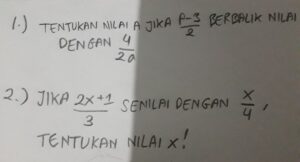 1.) TENTUKAN NILAI A JIKA \frac{A-3}{2} BERBALIK NILAI
DENGAN \frac{4}{20}
2.) JIKA \frac{2x+1}{3} SENILAI DENGAN \frac{x}{4},
TENTUKAN NILAI x!